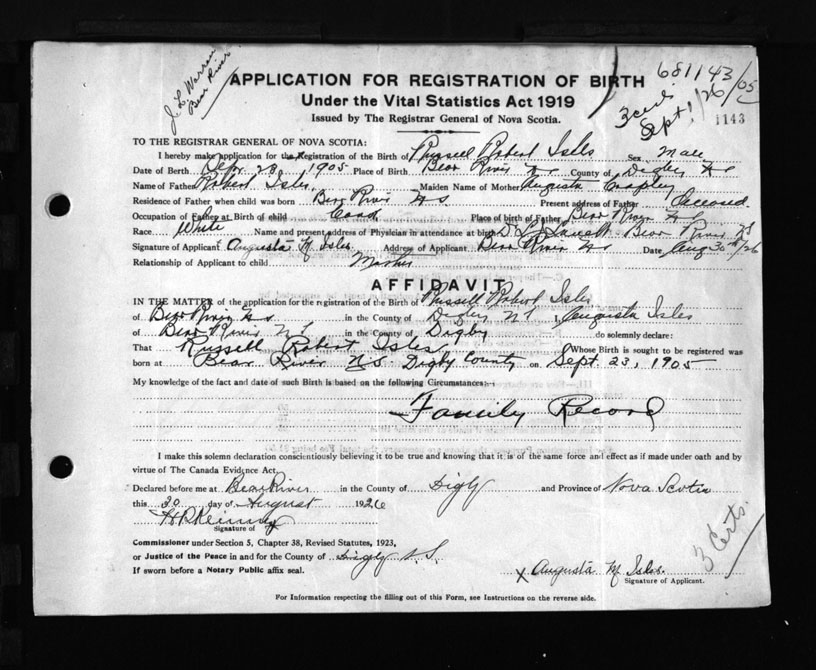 J. L. Warren
Bear River
681143/05
3 certs
Sept 1/26
1143
APPLICATION FOR REGISTRATION OF BIRTH
Under the Vital Statistics Act 1919
Issued by The Registrar General of Nova Scotia.
TO THE REGISTRAR GENERAL OF NOVA SCOTIA:
I hereby make application for the Registration of the Birth of Russell Robert Isles Sex Male
Date of Birth 23, 1905 Place of Birth Bear River N S County of Digby N S
Name of Father Robert Isles, Maiden Name of Mother Augusta
Residence of Father when child was born Bear River N S Present address of Father Deceased
Occupation of Father at Birth of child Cook Place of birth of Father Bear River N S
Race White Name and present address of Physician in attendance at birth Dr L J Bear River N S
Signature of Applicant Augusta M Isles Address of Applicant Bear River N S Date Aug 30th/26
Relationship of Applicant to child Mother
AFFIDAVIT
IN THE MATTER of the application for the registration of the Birth of Russell Robert Isles
of Bear River N S in the County of Digby N S I, Augusta Isles
of Bear River N S in the County of Digby do solemnly declare:
That Russell Robert Isles Whose Birth is sought to be registered was
born at Bear River N S Digby County on Sept. 23, 1905
My knowledge of the fact and date of such Birth is based on the following Circumstances:
Family Record
I make this solemn declaration conscientiously believing it to be true and knowing that it is of the same force and effect as if made under oath and by
virtue of The Canada Evidence Act.
Declared before me at Bear River in the County of Digby and Province of Nova Scotia
this 30 day of August 1926
Signature of
Commissioner under Section 5, Chapter 38, Revised Statutes, 1923,
or Justice of the Peace in and for the County of Digby N. S.
If sworn before a Notary Public affix seal.
X Augusta M Isles.
Signature of Applicant.
3 Certs.
For Information respecting the filling out of this Form, see Instructions on the reverse side.